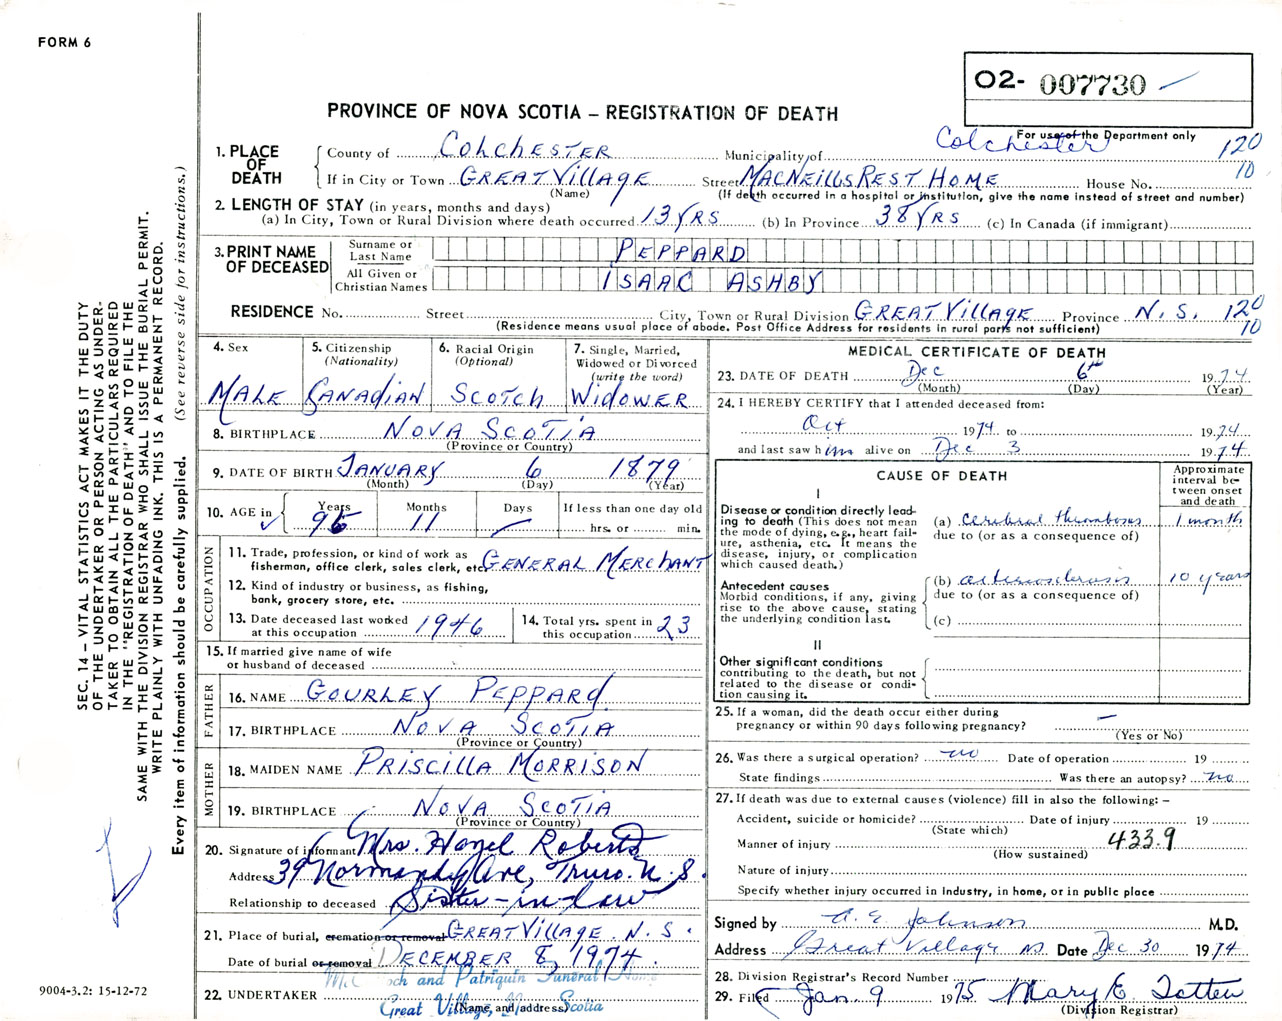 FORM 6
O2- 007730
PROVINCE OF NOVA SCOTIA – REGISTRATION OF DEATH
For use of the Department only
Colchester 120
10
1. PLACE OF DEATH
County of COLCHESTER Municipality of
If in City or Town GREAT VILLAGE Street MACNEILLS REST HOME House No.
(Name) (If death occurred in a hospital or institution, give the name instead of street and number)
2. LENGTH OF STAY (in years, months and days)
(a) In City, Town or Rural Division where death occurred 13 YRS (b) In Province 38 YRS (c) In Canada (if immigrant)
3. PRINT NAME OF DECEASED
Surname or Last Name PEPPARD
All Given or Christian Names ISAAC ASHBY
RESIDENCE No. Street City, Town or Rural Division GREAT VILLAGE Province N.S. 120
10
(Residence means usual place of abode. Post Office Address for residents in rural parts not sufficient)
4. Sex
MALE
5. Citizenship
(Nationality)
CANADIAN
6. Racial Origin
(Optional)
SCOTCH
7. Single, Married,
Widowed or Divorced
(write the word)
WIDOWER
8. BIRTHPLACE NOVA SCOTIA
(Province or Country)
9. DATE OF BIRTH JANUARY 6 1879
(Month) (Day) (Year)
10. AGE in
Years Months Days If less than one day old
95 11 hrs. or min.
OCCUPATION
11. Trade, profession, or kind of work as
fisherman, office clerk, sales clerk, etc. GENERAL MERCHANT
12. Kind of industry or business, as fishing,
bank, grocery store, etc.
13. Date deceased last worked
at this occupation 1946
14. Total yrs. spent in
this occupation 23
15. If married give name of wife
or husband of deceased
FATHER
16. NAME GOURLEY PEPPARD
17. BIRTHPLACE NOVA SCOTIA
(Province or Country)
MOTHER
18. MAIDEN NAME PRISCILLA MORRISON
19. BIRTHPLACE NOVA SCOTIA
(Province or Country)
20. Signature of informant Mrs. Hazel Roberts
Address 39 Normandy Ave, Truro. N.S.
Relationship to deceased Sister-in-law
21. Place of burial, cremation or removal GREAT VILLAGE N.S.
Date of burial or removal DECEMBER 8, 1974.
22. UNDERTAKER
and Patriquin Funeral Home
Great Village, Nova Scotia
(Name and address)
MEDICAL CERTIFICATE OF DEATH
23. DATE OF DEATH Dec 6th 1974
(Month) (Day) (Year)
24. I HEREBY CERTIFY that I attended deceased from:
Oct 1974 to 1974
and last saw him alive on Dec 3 1974
CAUSE OF DEATH
Approximate
interval be-
tween onset
and death
I
Disease or condition directly lead-
ing to death (This does not mean
the mode of dying, e.g., heart fail-
ure, asthenia, etc. It means the
disease, injury, or complication
which caused death.)
(a) cerebral thrombosis 1 month
due to (or as a consequence of)
Antecedent causes
Morbid conditions, if any, giving
rise to the above cause, stating
the underlying condition last.
(b) arteriosclerosis 10 years
due to (or as a consequence of)
(c)
II
Other significant conditions
contributing to the death, but not
related to the disease or condi-
tion causing it.
25. If a woman, did the death occur either during
pregnancy or within 90 days following pregnancy? —
(Yes or No)
26. Was there a surgical operation? no Date of operation 19
State findings Was there an autopsy? no
27. If death was due to external causes (violence) fill in also the following: –
Accident, suicide or homicide? Date of injury 19
(State which)
433.9
Manner of injury
(How sustained)
Nature of injury
Specify whether injury occurred in Industry, in home, or in public place
Signed by A. E. Johnson M.D.
Address Great Village NS Date Dec 30 1974
28. Division Registrar's Record Number
29. Filed Jan. 9 1975 Mary E. Totten
(Division Registrar)
SEC. 14 – VITAL STATISTICS ACT MAKES IT THE DUTY
OF THE UNDERTAKER OR PERSON ACTING AS UNDER-
TAKER TO OBTAIN ALL THE PARTICULARS REQUIRED
IN THE "REGISTRATION OF DEATH" AND TO FILE THE
SAME WITH THE DIVISION REGISTRAR WHO SHALL ISSUE THE BURIAL PERMIT.
WRITE PLAINLY WITH UNFADING INK. THIS IS A PERMANENT RECORD.
Every item of information should be carefully supplied. (See reverse side for instructions.)
9004-3.2: 15-12-72